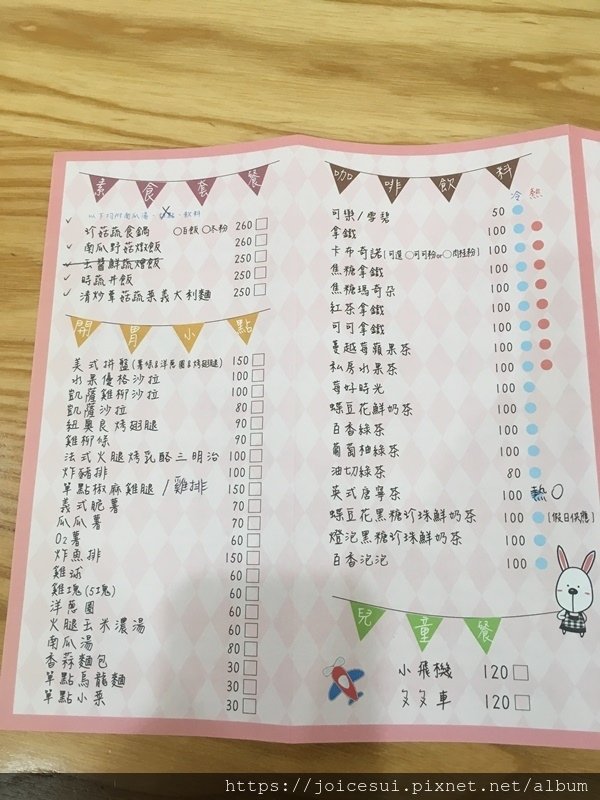 素食套餐
以下均附南瓜湯、甜點、飲料
✓ 珍菇蔬食鍋 ○白飯 ○冬粉 260
✓ 南瓜野菇燉飯 260
✓ 玉醬鮮蔬燴飯 250
✓ 時蔬丼飯 250
✓ 清炒草菇蔬菜義大利麵 250
開胃小點
美式拼盤(薯條&洋蔥圈&烤翅腿) 150
水果優格沙拉 100
凱薩雞柳沙拉 100
凱薩沙拉 80
紐奧良烤翅腿 90
雞柳條 90
法式火腿烤乳酪三明治 100
炸豬排 100
單點椒麻雞腿 /雞排 150
義式脆薯 70
瓜瓜薯 70
O2薯 60
炸魚排 150
雞球 60
雞塊(5塊) 60
洋蔥圈 60
火腿玉米濃湯 60
南瓜湯 80
香蒜麵包 30
單點烏龍麵 30
單點小菜 30
咖啡飲料
冷 熱
可樂/雪碧 50
拿鐵 100
卡布奇諾(可選○可可粉or○肉桂粉) 100
焦糖拿鐵 100
焦糖瑪奇朵 100
紅茶拿鐵 100
可可拿鐵 100
蔓越莓蘋果茶 100
私房水果茶 100
莓好時光 100
蝶豆花鮮奶茶 100
百香綠茶 100
葡萄柚綠茶 100
油切綠茶 80
英式唐寧茶 100 熱○
蝶豆花黑糖珍珠鮮奶茶 100 (假日供應)
燈泡黑糖珍珠鮮奶茶 100
百香泡泡 100
兒童餐
小飛機 120
ㄆㄆ車 120
https://joicesui.pixnet.net/album